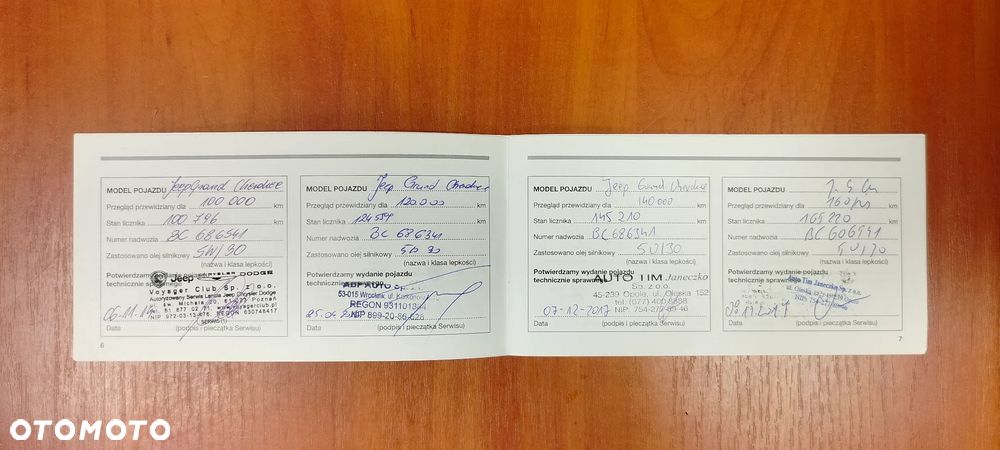 MODEL POJAZDU Jeep Grand Cherokee
Przegląd przewidziany dla 100 000 km
Stan licznika 100 796 km
Numer nadwozia BC 686341
Zastosowano olej silnikowy 5W/30
(nazwa i klasa lepkości)
Potwierdzamy wydanie pojazdu
technicznie sprawnego
Jeep CHRYSLER DODGE
Voyager Club Sp. z o.o.
Autoryzowany Serwis Lancia Jeep Chrysler Dodge
NIP 972-03-13-676, REGON 630748417
SERWIS (1)
06.11.
Data (podpis i pieczątka Serwisu)
6
MODEL POJAZDU Jeep Grand Cherokee
Przegląd przewidziany dla 120.000 km
Stan licznika km
Numer nadwozia BC 686341
Zastosowano olej silnikowy 5W30
(nazwa i klasa lepkości)
Potwierdzamy wydanie pojazdu
technicznie sprawnego
53-015 Wrocław, ul.
REGON
NIP 899-20-86-628
Data (podpis i pieczątka Serwisu)
MODEL POJAZDU Jeep Grand Cherokee
Przegląd przewidziany dla 140000 km
Stan licznika 145 210 km
Numer nadwozia BC686341
Zastosowano olej silnikowy 5W30
(nazwa i klasa lepkości)
Potwierdzamy wydanie pojazdu
technicznie sprawnego
AUTO TIM Janeczko
Sp. z o.o.
45-239 Opole, ul. Oleska 152
07-12-2017
Data (podpis i pieczątka Serwisu)
MODEL POJAZDU J. G. Ch
Przegląd przewidziany dla km
Stan licznika 169220 km
Numer nadwozia
Zastosowano olej silnikowy 5W30
(nazwa i klasa lepkości)
Potwierdzamy wydanie pojazdu
technicznie sprawnego
Auto Tim Janeczko Sp. z o.o.
Data (podpis i pieczątka Serwisu)
7
OTOMOTO